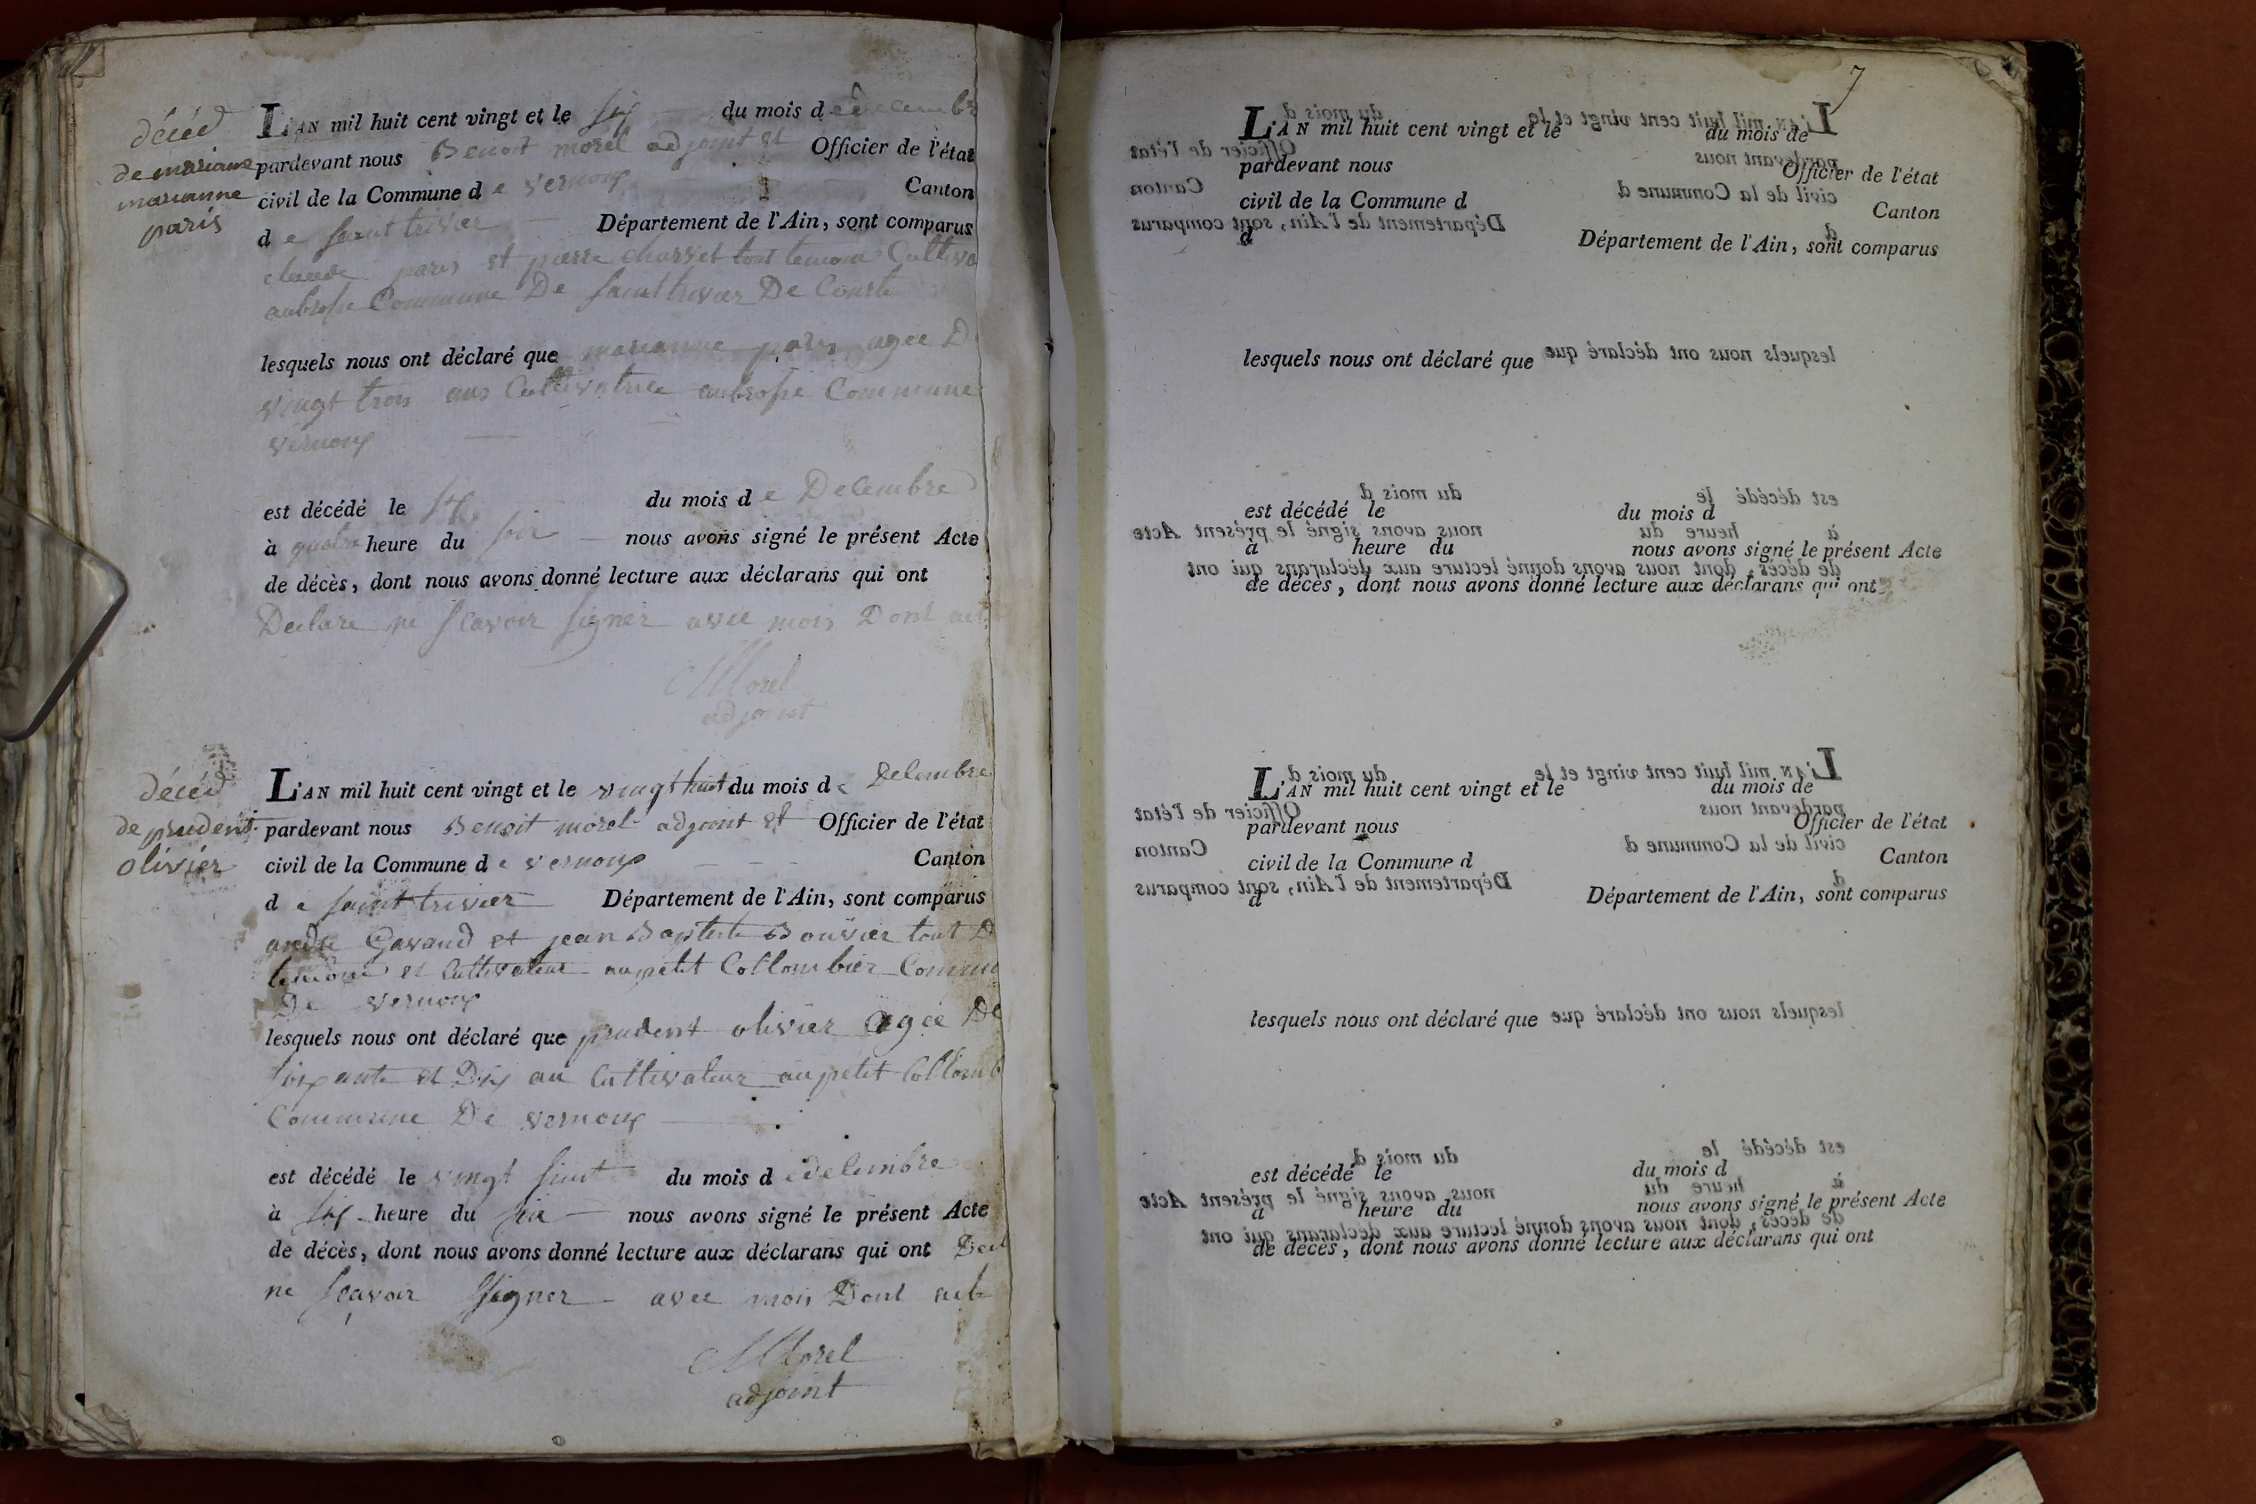 décéd
de mariane
marianne
paris
L'AN mil huit cent vingt et le six du mois de decembr
pardevant nous Benoit morel adjoint et Officier de l'état
civil de la Commune de vernoux Canton
de saint trivier Département de l'Ain, sont comparus
claude paris et pierre charvet tout temoin Cultiva
aubrosse Commune De saint trivier De Courte
lesquels nous ont déclaré que marianne paris agee D
vingt trois ans Cultivatrice aubrosse Commune
vernoux
est décédé le six du mois de Decembre
à quatre heure du soir nous avons signé le présent Acte
de décès, dont nous avons donné lecture aux déclarans qui ont
Declare ne scavoir signer avec mois Dont act
Morel
adjoint
décéd
de prudent
olivier
L'AN mil huit cent vingt et le vingt huit du mois de Decembre
pardevant nous Benoit morel adjoint et Officier de l'état
civil de la Commune de vernoux Canton
de saint trivier Département de l'Ain, sont comparus
andre Gavand et jean Baptiste Bouvier tout D
temoin et Cultivateur au petit Collombier Commu
De vernoux
lesquels nous ont déclaré que prudent olivier agée De
soixante et Dix an Cultivateur au petit Collomb
Commune De vernoux
est décédé le vingt huit du mois de decembre
à six heure du soir nous avons signé le présent Acte
de décès, dont nous avons donné lecture aux déclarans qui ont Decl
ne scavoir signer avec mois Dont act
Morel
adjoint
7
L'AN mil huit cent vingt et le du mois de
pardevant nous Officier de l'état
civil de la Commune d Canton
d Département de l'Ain, sont comparus
lesquels nous ont déclaré que
est décédé le du mois d
à heure du nous avons signé le présent Acte
de décès, dont nous avons donné lecture aux déclarans qui ont
L'AN mil huit cent vingt et le du mois de
pardevant nous Officier de l'état
civil de la Commune d Canton
d Département de l'Ain, sont comparus
lesquels nous ont déclaré que
est décédé le du mois d
à heure du nous avons signé le présent Acte
de décès, dont nous avons donné lecture aux déclarans qui ont